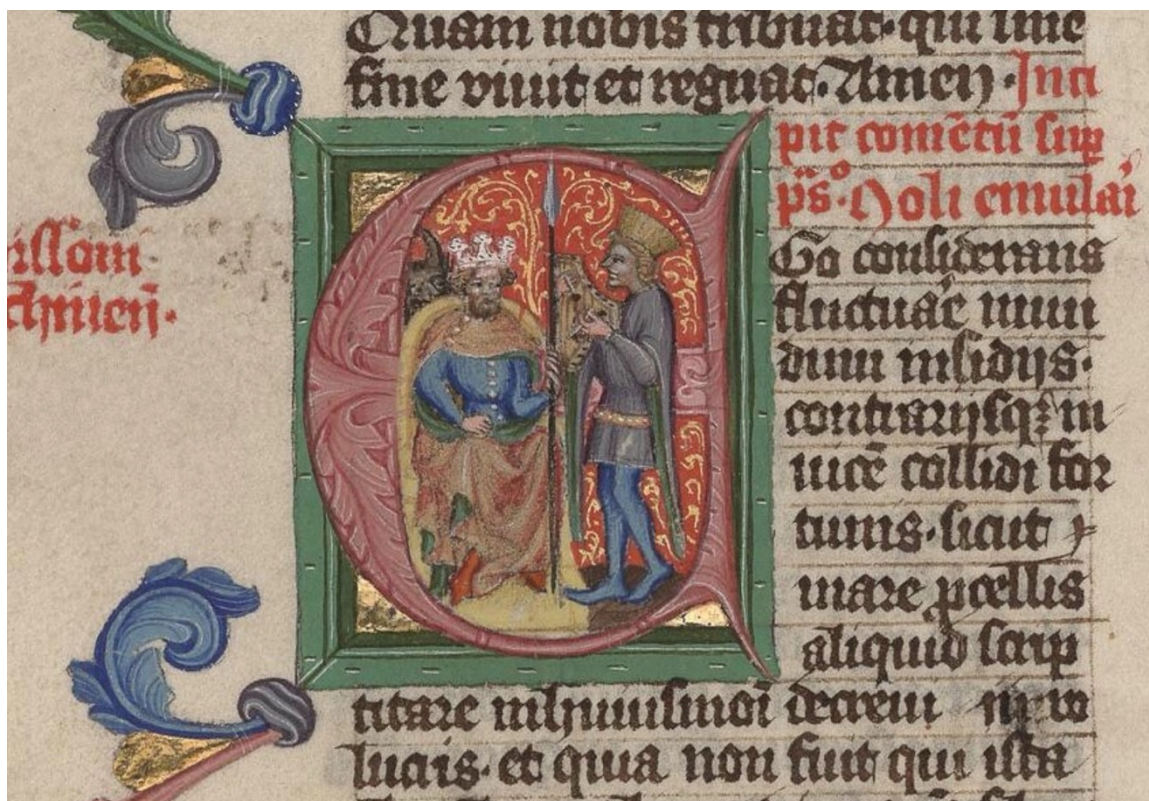 Quam nobis tribuat· qui sine
fine viuit et regnat. Amen· Inci
pit comētū sup
ps· Noli emulari
Amen·
Go considerans
fluctuac̄ mun
dum insidijs·
contrarijsqꝫ in
uicē collidi for
tunis· sicut
mare ꝓcellis
aliquid scrip
titare
decreui
lucris· et quia non fuit qui ista